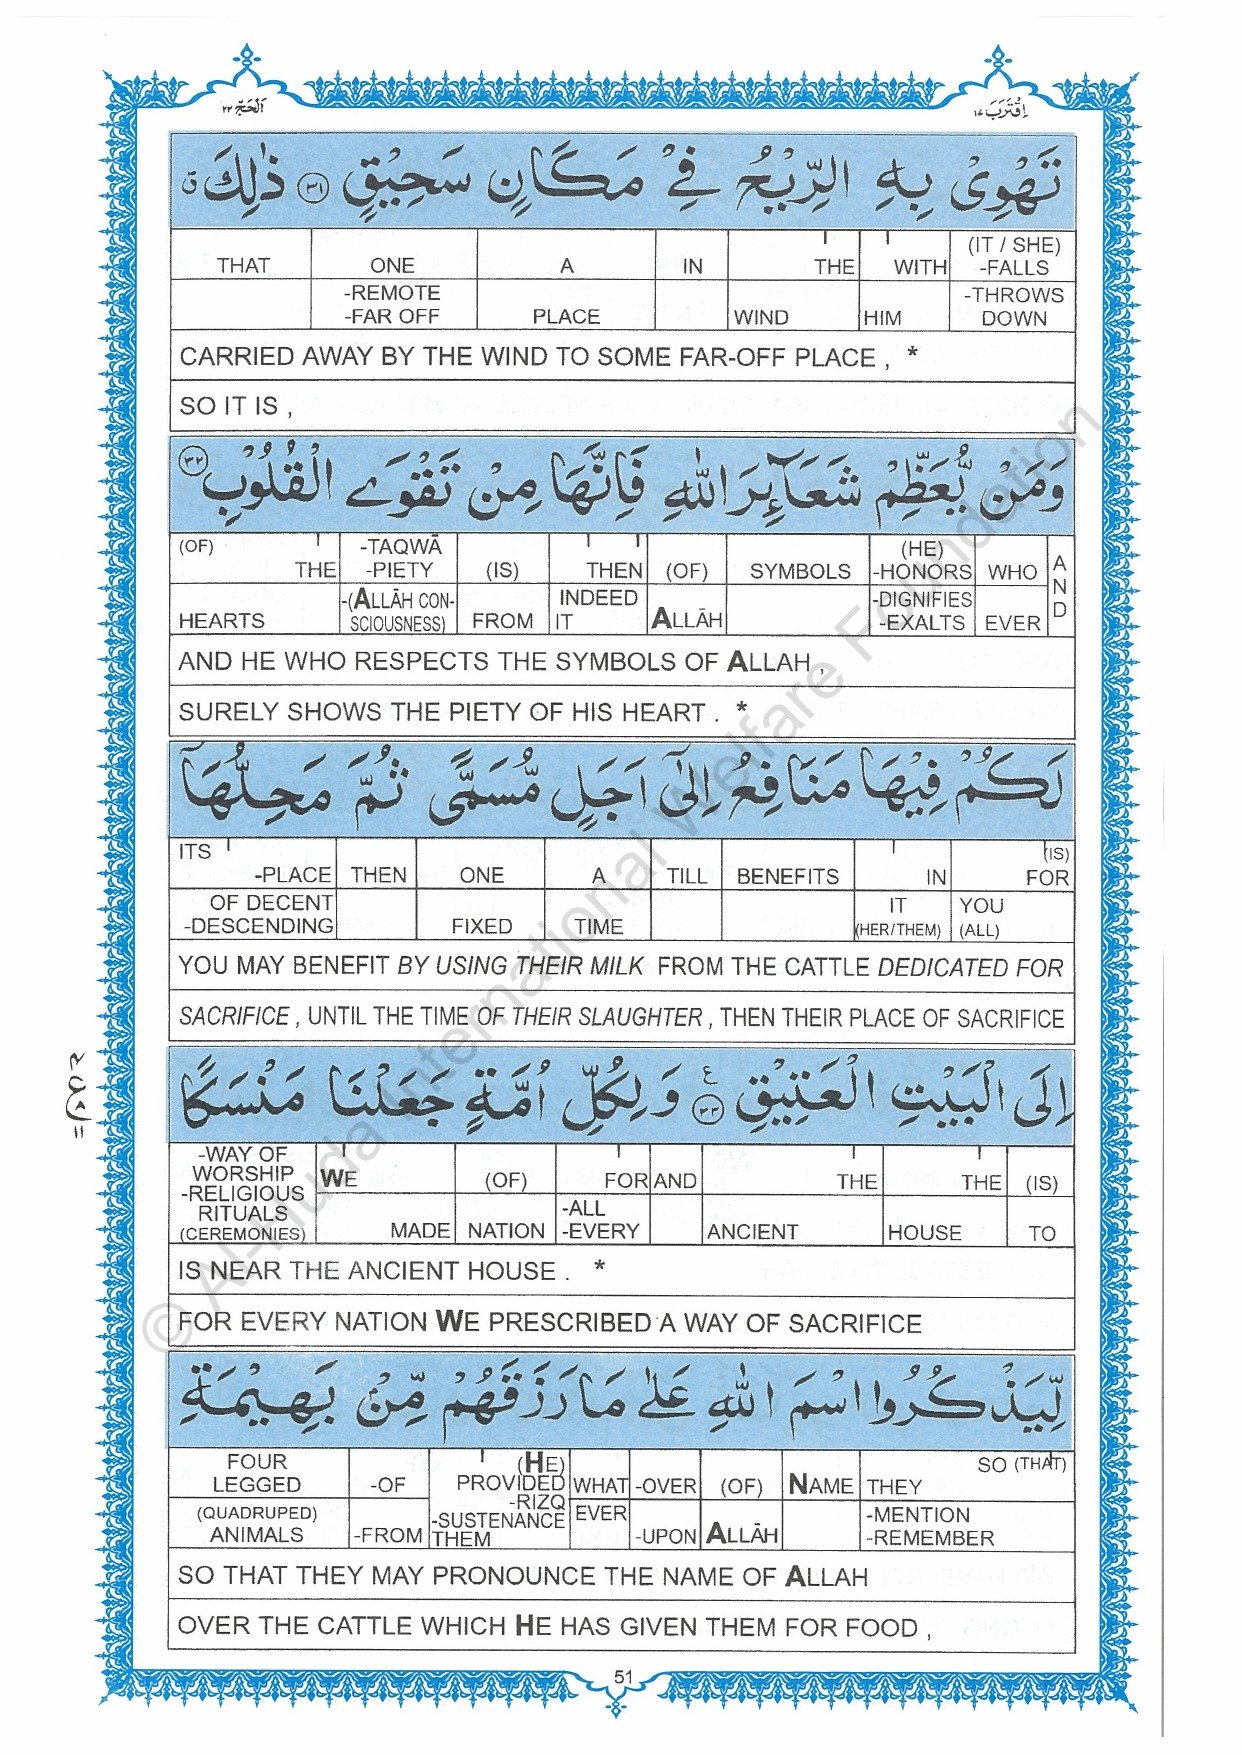 اَلْحَجّ ٢٢
اِقْتَرَبَ ١٧
تَهْوِىْ بِهِ الرِّيْحُ فِىْ مَكَانٍ سَحِيْقٍ ٣١ ذٰلِكَ ق
THAT ONE A IN THE WITH (IT / SHE) -FALLS
-REMOTE -FAR OFF PLACE WIND HIM -THROWS DOWN
CARRIED AWAY BY THE WIND TO SOME FAR-OFF PLACE , *
SO IT IS ,
وَمَنْ يُّعَظِّمْ شَعَآئِرَ اللّٰهِ فَاِنَّهَا مِنْ تَقْوَى الْقُلُوْبِ ٣٢
(OF) THE -TAQWĀ -PIETY (IS) THEN (OF) SYMBOLS (HE) -HONORS WHO AND
HEARTS -(ALLĀH CON- SCIOUSNESS) FROM INDEED IT ALLĀH -DIGNIFIES -EXALTS EVER
AND HE WHO RESPECTS THE SYMBOLS OF ALLAH ,
SURELY SHOWS THE PIETY OF HIS HEART . *
لَكُمْ فِيْهَا مَنَافِعُ اِلٰٓى اَجَلٍ مُّسَمًّى ثُمَّ مَحِلُّهَآ
ITS -PLACE THEN ONE A TILL BENEFITS IN (IS) FOR
OF DECENT -DESCENDING FIXED TIME IT (HER/THEM) YOU (ALL)
YOU MAY BENEFIT BY USING THEIR MILK FROM THE CATTLE DEDICATED FOR
SACRIFICE , UNTIL THE TIME OF THEIR SLAUGHTER , THEN THEIR PLACE OF SACRIFICE
اِلَى الْبَيْتِ الْعَتِيْقِ ٣٣ ع وَلِكُلِّ اُمَّةٍ جَعَلْنَا مَنْسَكًا
-WAY OF WORSHIP -RELIGIOUS RITUALS (CEREMONIES) WE (OF) FOR AND THE THE (IS)
MADE NATION -ALL -EVERY ANCIENT HOUSE TO
IS NEAR THE ANCIENT HOUSE . *
FOR EVERY NATION WE PRESCRIBED A WAY OF SACRIFICE
لِّيَذْكُرُوا اسْمَ اللّٰهِ عَلٰى مَا رَزَقَهُمْ مِّنْۢ بَهِيْمَةِ
FOUR LEGGED -OF (HE) PROVIDED -RIZQ WHAT -OVER (OF) NAME THEY SO (THAT)
(QUADRUPED) ANIMALS -FROM -SUSTENANCE THEM EVER -UPON ALLĀH -MENTION -REMEMBER
SO THAT THEY MAY PRONOUNCE THE NAME OF ALLAH
OVER THE CATTLE WHICH HE HAS GIVEN THEM FOR FOOD ,
51
© Al-Huda International Welfare Foundation